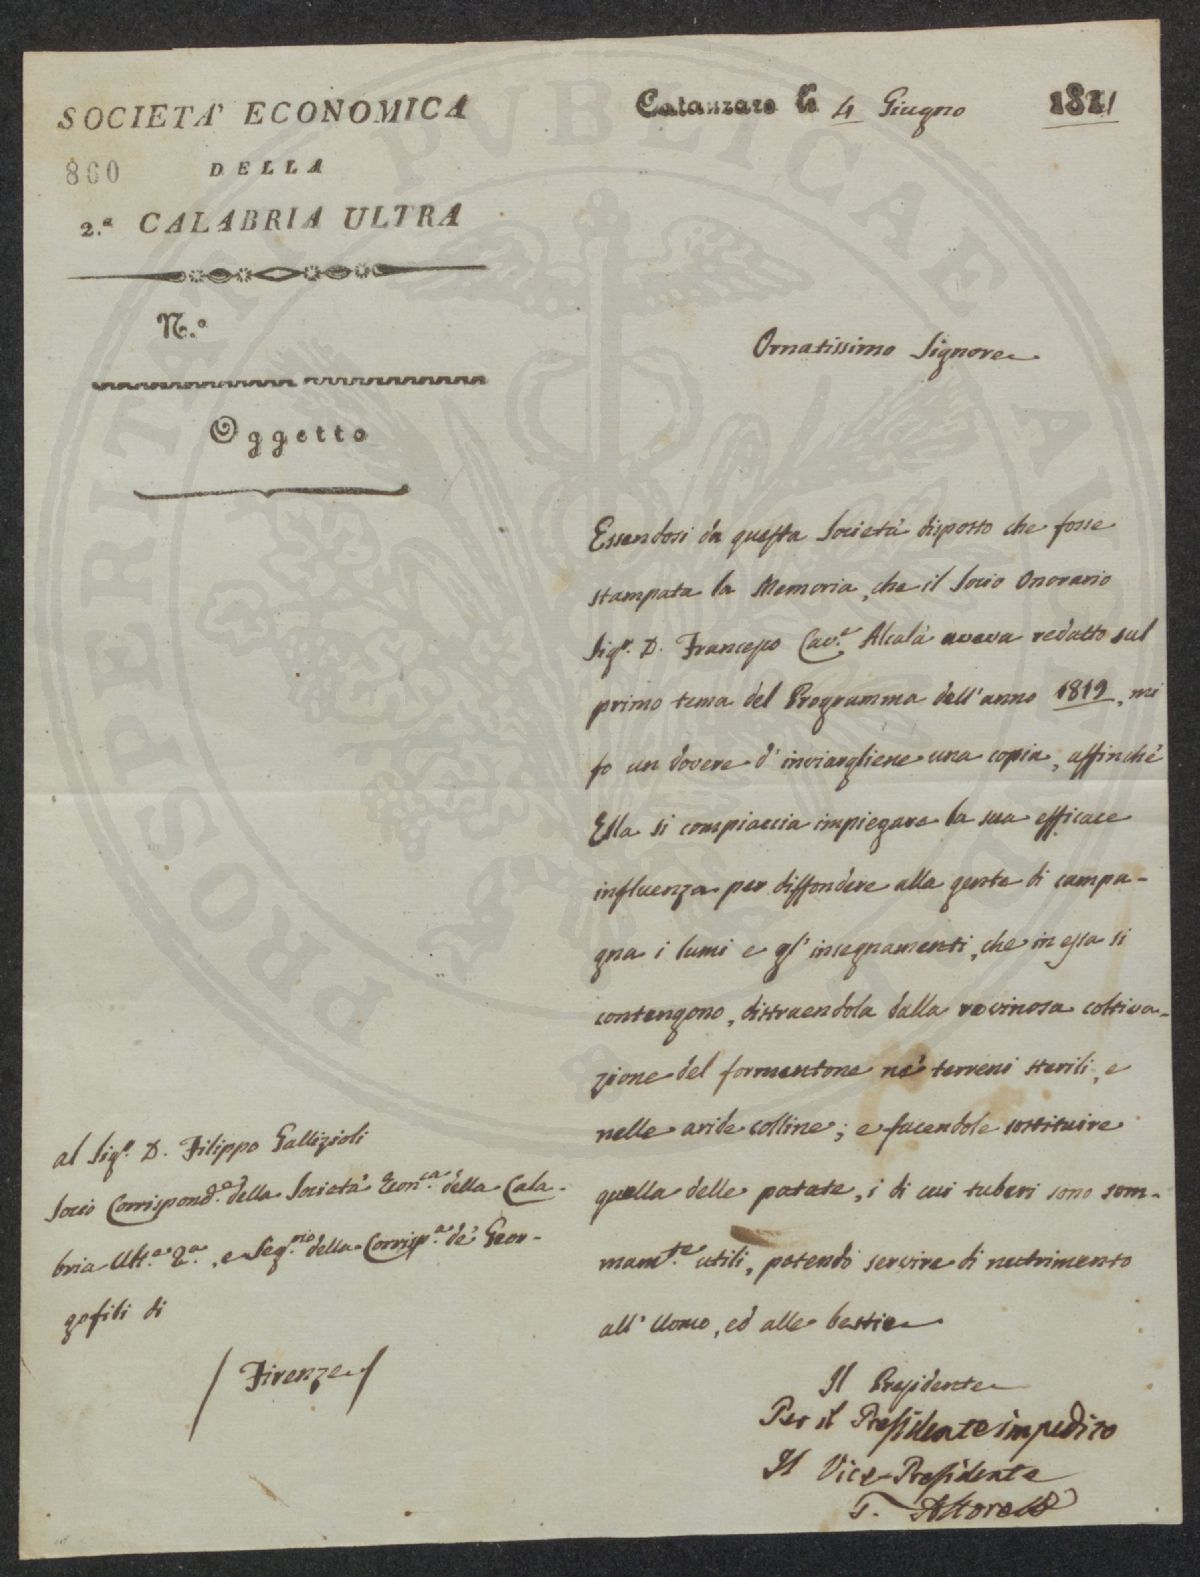 SOCIETA' ECONOMICA
860 DELLA
2.ª CALABRIA ULTRA
N.º
Oggetto
Catanzaro li 4 Giugno 1821
Ornatissimo Signore
Essendosi da questa Società disposto che fosse
stampata la Memoria, che il Socio Onorario
Sig.r D. Francesco Cav.e Alcalà aveva redatto sul
primo tema del Programma dell'anno 1819, mi
fo un dovere d'inviargliene una copia, affinchè
Ella si compiaccia impiegare la sua efficace
influenza per diffondere alla gente di campa-
gna i lumi e gl'insegnamenti, che in essa si
contengono, distraendola dalla rovinosa coltiva-
zione del formentone ne' terreni sterili, e
nelle aride colline; e facendole sostituire
quella delle patate, i di cui tuberi sono som-
mam.te utili, potendo servire di nutrimento
all'Uomo, ed alle bestie
Il Presidente
Per il Presidente impedito
Il Vice-Presidente
al Sig.r D. Filippo Gallizioli
Socio Corrispond.e della Società Econ.ca della Cala-
bria Ult.e 2.a, e Seg.rio della Corrisp.a de' Geor-
gofili di
/ Firenze /
PROSPERITATI PVBLICAE AVGENDAE